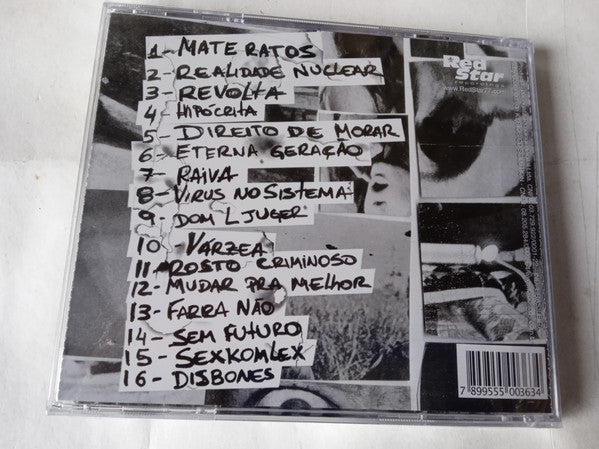 1- MATE RATOS
2- REALIDADE NUCLEAR
3- REVOLTA
4- HIPÓCRITA
5- DIREITO DE MORAR
6- ETERNA GERAÇÃO
7- RAIVA
8- VIRUS NO SISTEMA
9- DOM L JUGER
10 - VARZEA
11- ROSTO CRIMINOSO
12- MUDAR PRA MELHOR
13- FARRA NÃO
14- SEM FUTURO
15- SEXKOMLEX
16- DISBONES
Red Star
recordings
www.RedStar77.com
7 899555 003634